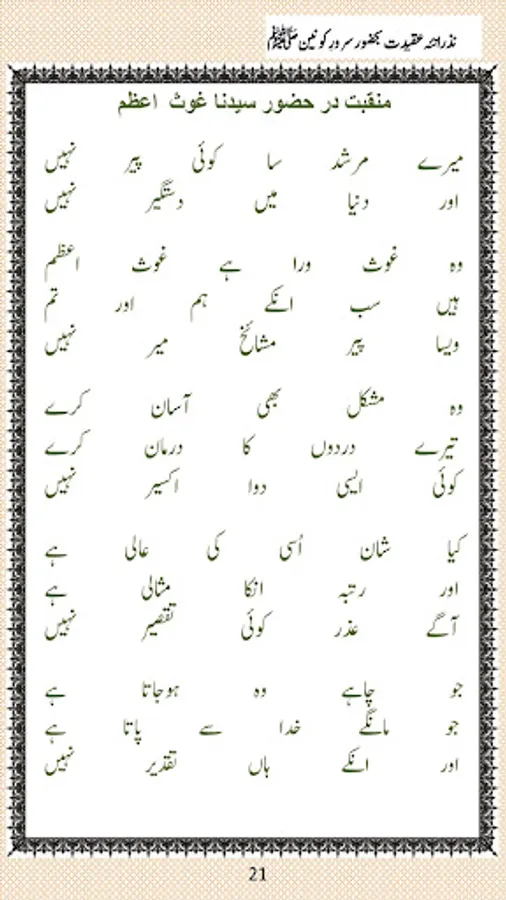 نذرانہ عقیدت بحضور سرور کونین ﷺ
منقبت در حضور سیدنا غوث اعظم
میرے مرشد سا کوئی پیر نہیں
اور دنیا میں دستگیر نہیں
وہ غوث ورا ہے غوث اعظم
ہیں سب انکے ہم اور تم
ویسا پیر مشائخ میر نہیں
وہ مشکل بھی آسان کرے
تیرے دردوں کا درمان کرے
کوئی ایسی دوا اکسیر نہیں
کیا شان اُسی کی عالی ہے
اور رتبہ انکا مثالی ہے
آگے عذر کوئی تقصیر نہیں
جو چاہے وہ ہوجاتا ہے
جو مانگے خدا سے پاتا ہے
اور انکے ہاں تقدیر نہیں
21